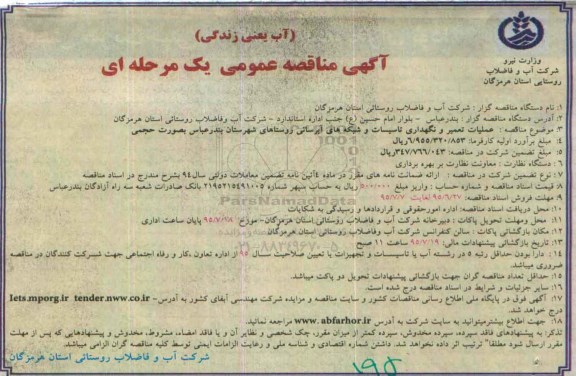 (آب یعنی زندگی)
آگهی مناقصه عمومی یک مرحله ای
وزارت نیرو
شرکت آب و فاضلاب
روستایی استان هرمزگان
۱: نام دستگاه مناقصه گزار : شرکت آب و فاضلاب روستائی استان هرمزگان
۲: آدرس دستگاه مناقصه گزار : بندرعباس - بلوار امام حسین (ع) جنب اداره استاندارد - شرکت آب وفاضلاب روستائی استان هرمزگان
۳: موضوع مناقصه : عملیات تعمیر و نگهداری تاسیسات و شبکه های آبرسانی روستاهای شهرستان بندرعباس بصورت حجمی
۴: مبلغ برآورد اولیه کارفرما: ۶/۹۵۵/۳۲۰/۸۵۳ریال
۵: مبلغ تضمین شرکت در مناقصه: ۳۴۷/۷۶۶/۰۴۳ریال
۶: دستگاه نظارت : معاونت نظارت بر بهره برداری
۷: نوع تضمین شرکت در مناقصه : ارائه ضمانت نامه های مقرر در ماده ۴آئین نامه تضمین معاملات دولتی سال۹۴ بشرح مندرج در اسناد مناقصه
۸: قیمت اسناد مناقصه و شماره حساب : واریز مبلغ ۵۰۰/۰۰۰ریال به حساب سپهر شماره ۲۱۹۵۲۱۵۴۹۱۰۰۵ بانک صادرات شعبه سه راه آزادگان بندرعباس
۹: مهلت فروش اسناد مناقصه: ۹۵/۶/۲۷ لغایت ۹۵/۷/۷
۱۰: محل دریافت اسناد مناقصه: اداره امورحقوقی و قراردادها و رسیدگی به شکایات
۱۱: محل ومهلت تحویل پاکات : دبیرخانه شرکت آب و فاضلاب روستائی استان هرمزگان- مورخ ۹۵/۷/۱۸ پایان ساعت اداری
۱۲: مکان بازگشائی پاکات : سالن کنفرانس شرکت آب و فاضلاب روستائی استان هرمزگان
۱۳: تاریخ بازگشائی پیشنهادات مالی: ۹۵/۷/۱۹ ساعت ۱۱ صبح
۱۴: دارا بودن حداقل رتبه ۵ در رشته آب یا تاسیسات و تجهیزات یا تعیین صلاحیت سال ۹۵ از اداره تعاون ،کار و رفاه اجتماعی جهت شرکت کنندگان در مناقصه
ضروری میباشد.
۱۵: حداقل تعداد مناقصه گران جهت بازگشائی پیشنهادات تحویل دو پاکت میباشد.
۱۶: سایر جزئیات و شرایط در اسناد مناقصه درج شده است.
۱۷: آگهی فوق در پایگاه ملی اطلاع رسانی مناقصات کشور و سایت مناقصه و مزایده شرکت مهندسی آبفای کشور به آدرس- Iets.mporg.ir tender.nww.co.ir
درج خواهد شد.
۱۸: جهت اطلاع بیشترمیتوانید به سایت شرکت به آدرس www.abfarhor.ir مراجعه نمائید.
تذکر: به پیشنهادهای فاقد سپرده، سپرده مخدوش، سپرده کمتر از میزان مقرر، چک شخصی و نظایر آن و یا فاقد امضاء، مشروط، مخدوش و پیشنهادهایی که پس از مهلت
مقرر ارسال شود مطلقا" ترتیب اثر داده نخواهد شد. داشتن شماره اقتصادی و شناسه ملی و رعایت الزامات ایمنی توسط کلیه مناقصه گران الزامی میباشد.
شرکت آب و فاضلاب روستائی استان هرمزگان
ParsNamadData
۰۲۱-۸۸۳۴۹۶۷۰-۵